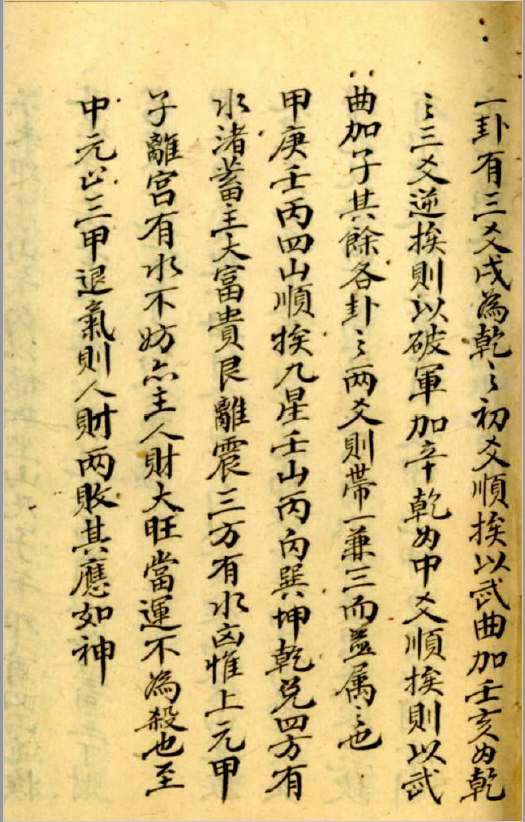 一卦有三爻戌為乾〻初爻順挨以武曲加壬亥为乾
〻三爻逆挨則以破軍加辛乾为中爻順挨則以武
曲加子其餘各卦〻两爻則帶一兼三而並属〻也
甲庚壬丙四山順挨九星壬山丙向巽坤乾兌四方有
水渚蓄主大富貴艮離震三方有水凶惟上元甲
子離宮有水不妨亦主人財大旺當運不為殺也至
中元止三甲退氣則人財两敗其應如神